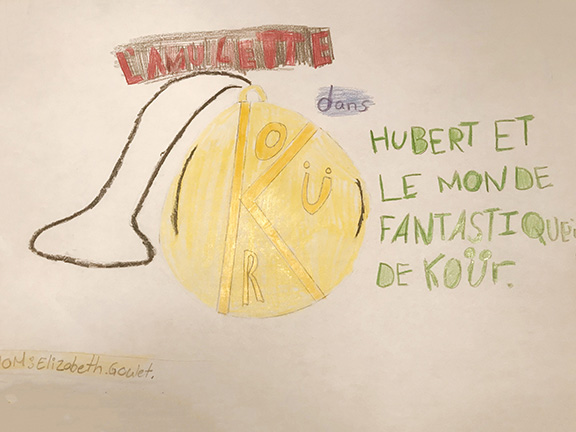 L'AMULETTE
dans
HUBERT ET
LE MONDE
FANTASTIQUE
DE KOÜr.
K O Ü R
Elizabeth.